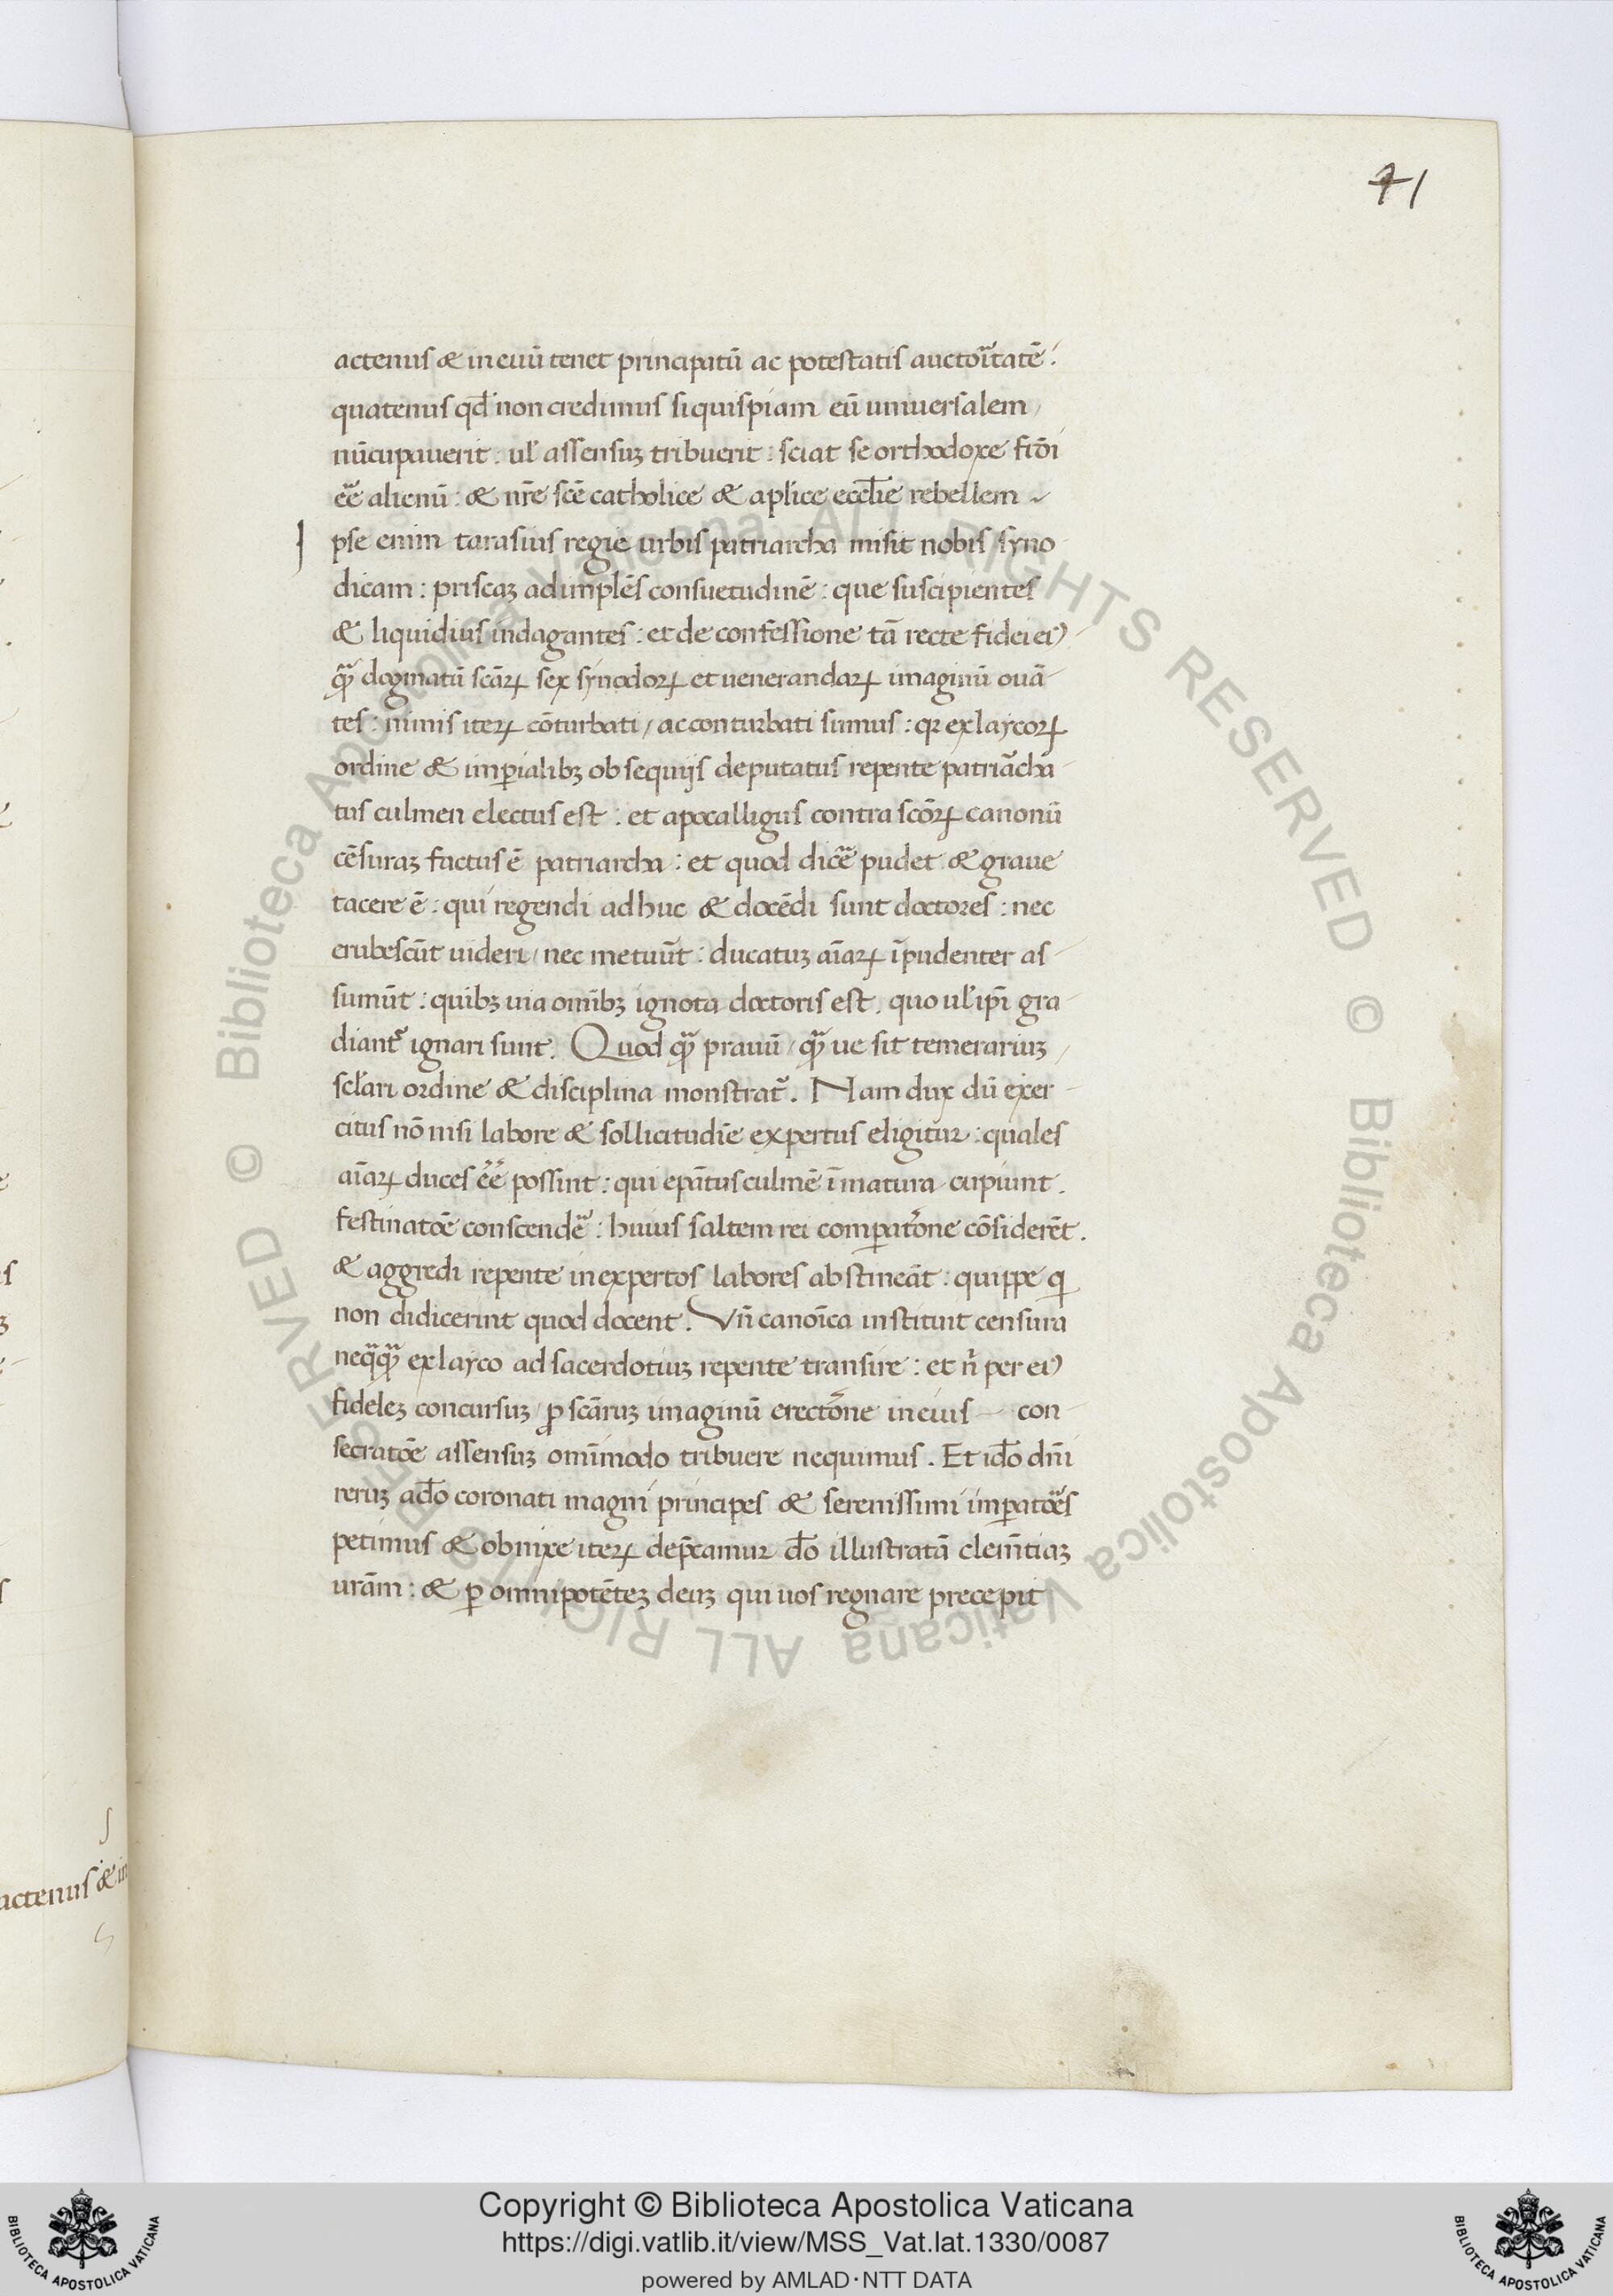 71
actenus & in euū tenet principatū ac potestatis auctoītatē:
quatenus qd̄ non credimus siquispiam eū uniuersalem,
nūcupauerit: ul̓ assensuꝫ tribuerit: sciat se orthodoxe fid̄i
eē̄ alienū: & nr̄e scē catholice & aplice eccl̄ie rebellem ~
Ipse enim tarasius regie urbis patriarcha misit nobis syno
dicam: priscaꝫ adimplēs consuetudinē: que suscipientes
& liquidius indagantes: et de confessione tā recte fidei eiꝰ
qꝫ̄ dogmatū scāꝝ sex synodoꝝ et uenerandaꝝ imaginū ouā-
tes: nimis iteꝝ cōturbati, ac conturbati sumus: qꝛ ex laycoꝝ
ordine & imꝑialibꝫ obsequijs deputatus repente patriācha-
tus culmen electus est: et apocalligus contra scōꝝ canonū
cēsuraꝫ factus ē patriarcha: et quod dicē̄ pudet & graue
tacere ē: qui regendi adhuc & docēdi sunt doctores: nec
erubescūt uideri, nec metuūt: ducatuꝫ aīaꝝ īpudenter as-
sumūt: quibꝫ uia omībꝫ ignota doctoris est, quo ul̓ ip̄i gra-
diant᷑ ignari sunt. Quod qꝫ̄ prauū, qꝫ̄ ue sit temerariuꝫ,
scl̄ari ordine & disciplina monstrat᷑. Nam dux dū exer-
citus nō nisi labore & sollicitudīe expertus eligitur: quales
aīaꝝ duces eē̄ possint: qui ep̄atus culmē īmatura cupiunt.
festinatōe conscendē̄: huius saltem rei comꝑat᷑one cōsiderēt.
& aggredi repente inexpertos labores abstineāt: quippe q̄
non didicerint quod docent. Vn̄ canoīca instituit censura
neq̄qꝫ̄ ex layco ad sacerdotiuꝫ repente transire: et n̄ per eiꝰ
fideleꝫ concursuꝫ, ꝓ scāruꝫ imaginū erectōne in eius — con-
secratōe assensuꝫ omīmodo tribuere nequimus. Et id̄o dn̄i
reruꝫ ad̄o coronati magni principes & serenissimi imꝑatōēs
petimus & obnixe iteꝝ dep̄camur d̄o illustratā clemn̄tiaꝫ
urām: & ꝑ omnipotēteꝫ deuꝫ qui uos regnare precepit
actenus & in
Copyright © Biblioteca Apostolica Vaticana
https://digi.vatlib.it/view/MSS_Vat.lat.1330/0087
powered by AMLAD·NTT DATA
BIBLIOTECA APOSTOLICA VATICANA
BIBLIOTECA APOSTOLICA VATICANA
© Biblioteca Apostolica Vaticana ALL RIGHTS RESERVED
© Biblioteca Apostolica Vaticana ALL RIGHTS RESERVED